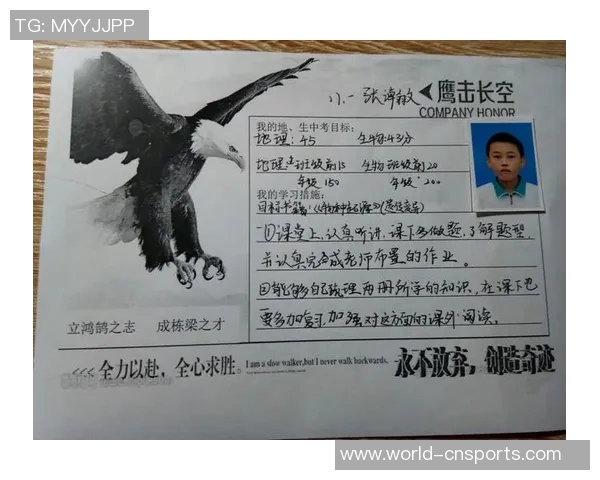 TG: MYYJJPP
八.一 张谆敏
鹰击长空
COMPANY HONOR
我的地、生中考目标:
地理:45 生物:43分
地理:班级前15 生物 班级前20
年级 150 年级:200
我的学习措施:
目标书籍:《物种起源》(达尔文)
①课堂上,认真听讲,课下多做题,了解题型,
并认真完成老师布置的作业。
②能够自己梳理两册所学的知识,在课下也
要多加复习,加强对这方面的课外阅读。
立鸿鹄之志 成栋梁之才
<<< 全力以赴,全心求胜。 I am a slow walker,but I never walk backwards. 永不放弃,创造奇迹
www.world-cnsports.com